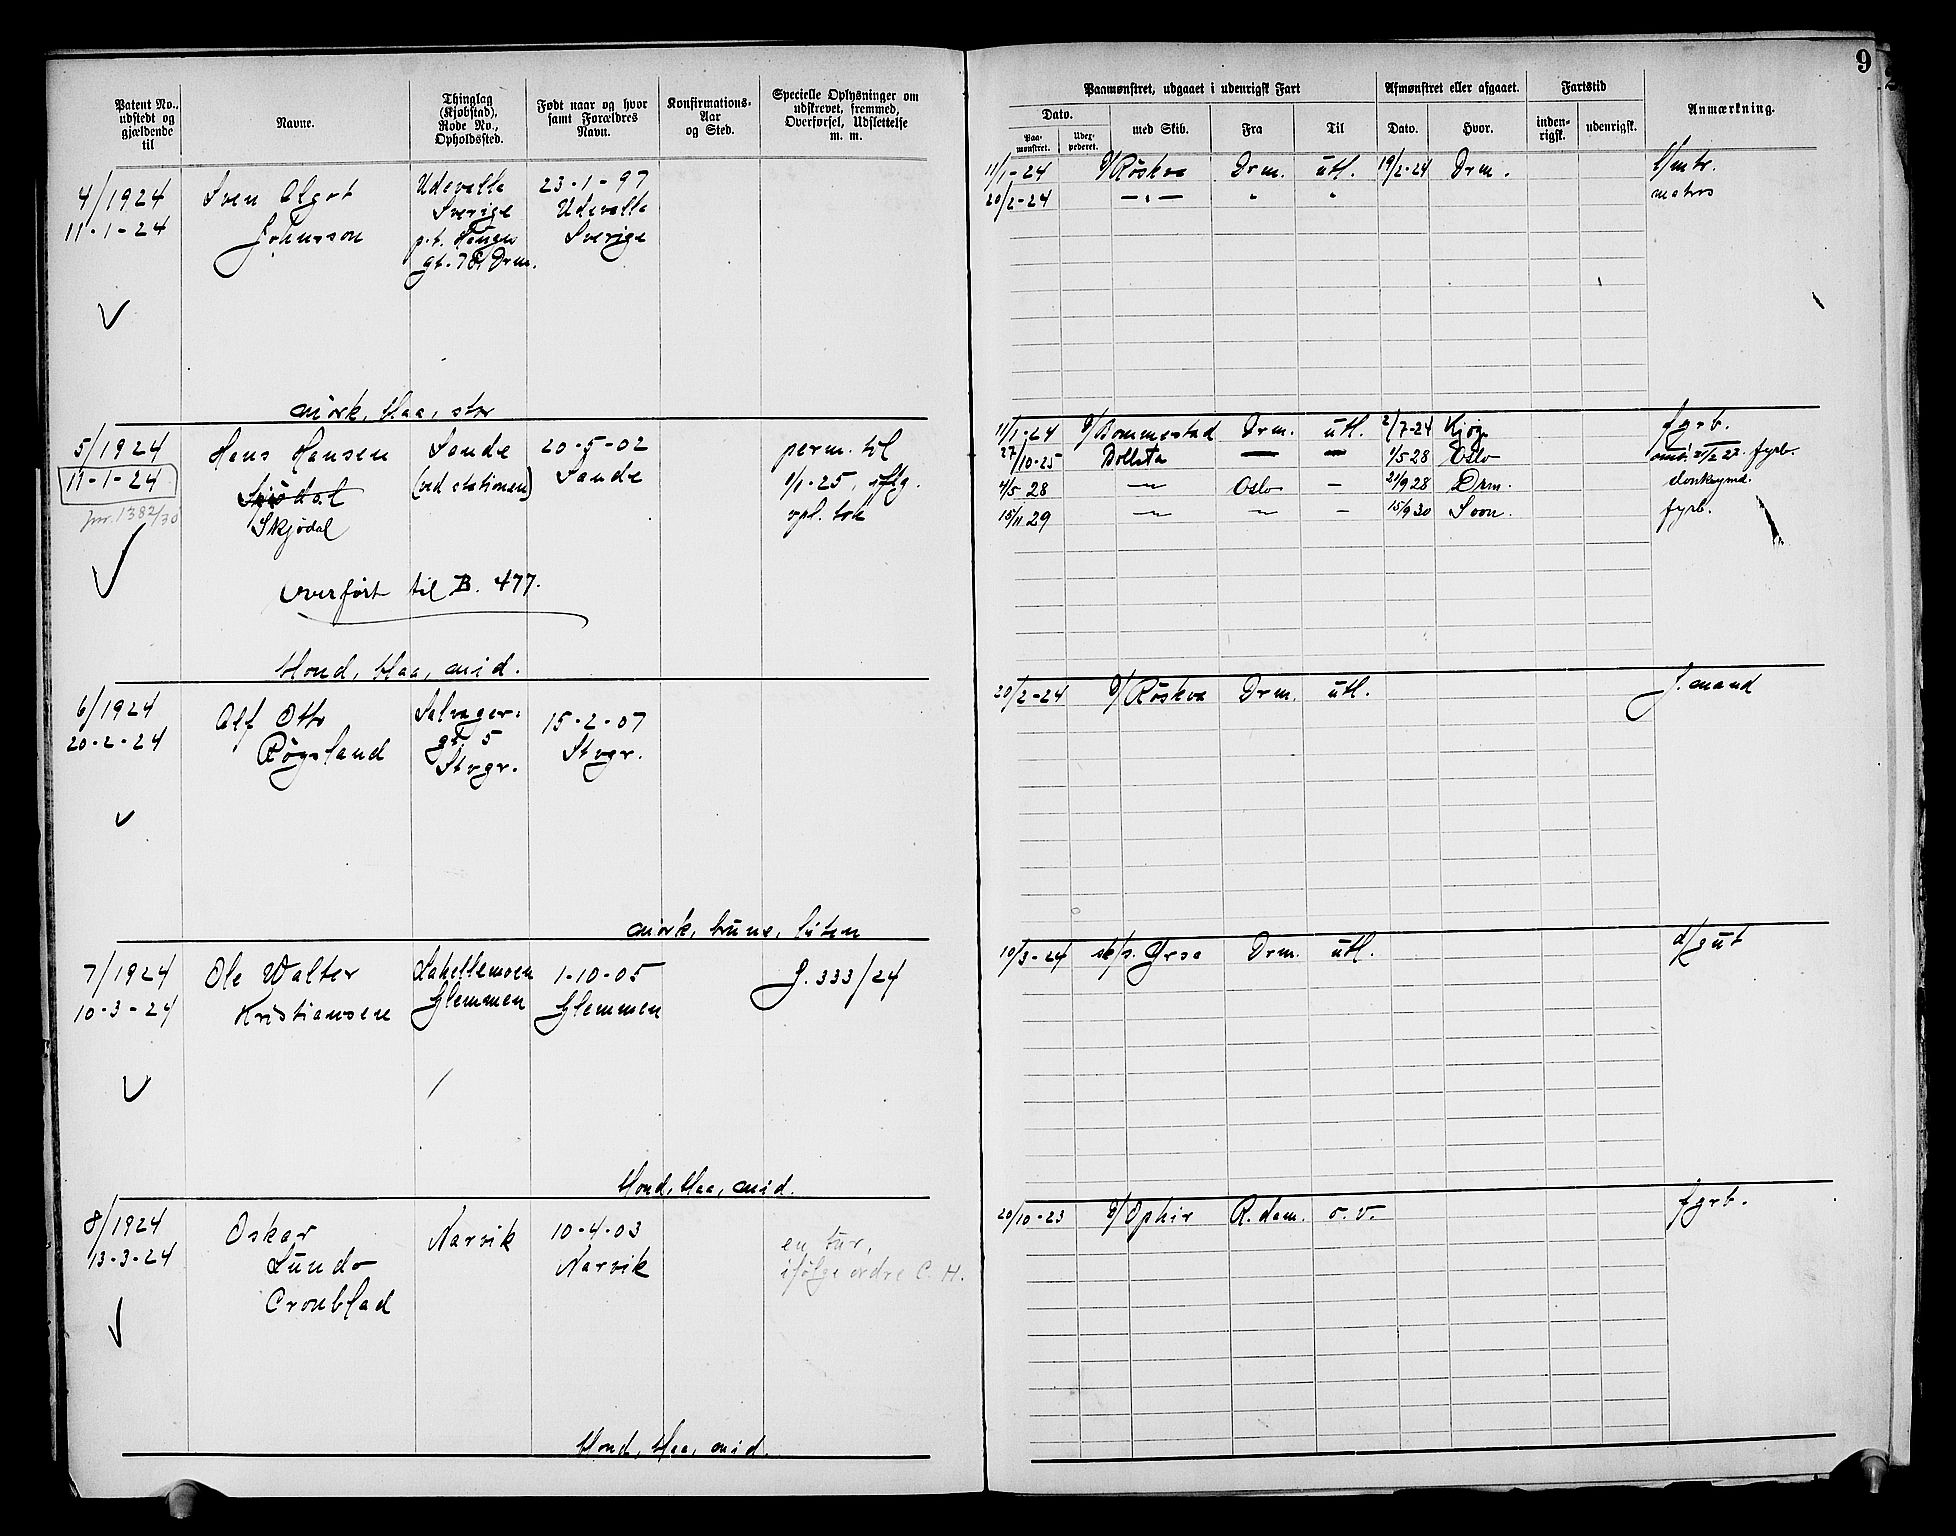 9
Patent No., udstedt og gjældende til
Navne.
Thinglag (Kjøbstad), Rode No., Opholdssted.
Født naar og hvor samt Forældres Navn.
Konfirmations-Aar og Sted.
Specielle Oplysninger om udskrevet, fremmed, Overførsel, Udslettelse m. m.
Paamønstret, udgaaet i udenrigsk Fart
Afmønstret eller afgaaet.
Fartstid
Anmærkning.
Dato.
Paa-mønstret.
Udex-pederet.
med Skib.
Fra
Til
Dato.
Hvor.
inden-rigsk.
udenrigsk.
4/1924 Sven Algot Udevalla 23-1-97
11-1-24 Johnsson Sverige Udevalla
p.t. Haugen Sverige
gt. 78, Drm.
mørk, blaa, stor
11/1-24 D/ Røskva Drm. utl. 19/2-24 Drm. l/mtr.
20/2-24 — " — " " matros
5/1924 Hans Hansen Sande 20-5-02 perm. til
11-1-24 (ved stationen) Sande 1/1-25, iflg.
jnr. 1382/30 Skjødal opl. bok
Overført til B. 477.
blond, blaa, mid.
11/1-24 D/ Bommestad Drm. utl. 2/7-24 Kjøg. fyrb.
27/10-25 Bollsta — — 1/5 28 Oslo fyrb.
4/5 28 —"— Oslo - 21/9 28 Drm. donkeymd.
15/11 29 —"— —"— - 15/9 30 Soon. fyrb.
6/1924 Alf Otto Salvager-
20-2-24 Røgsland gt. 5 15-2-07
Stvgr. Stvgr.
mørk, brune, liten
20/2-24 D/ Røskva Drm. utl. j.mand
7/1924 Ole Walter Lahellemoen 1-10-05 J. 333/24
10-3-24 Kristiansen Glemmen Glemmen
blond, blaa, mid.
10/3-24 sk/s. Yrsa Drm. utl. d/gut
8/1924 Oskar Narvik 10-4-03 en tur,
13-3-24 Lundo Narvik ifølge ordre C. H.
Cronblad
blond, blaa, mid.
20/10-23 D/ Ophir R.dam. o.v. fyrb.